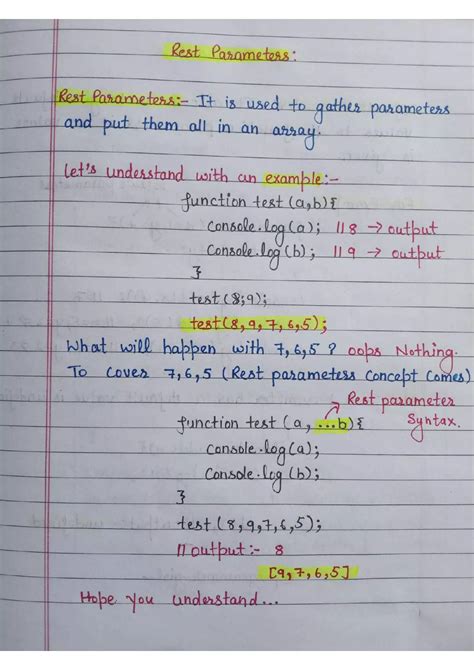 Rest Parameters:
Rest Parameters:- It is used to gather parameters
and put them all in an array.
Let's understand with an example:-
function test (a,b){
Console.log(a); //8 → output
Console.log(b); //9 → output
}
test(8,9);
test(8,9,7,6,5);
What will happen with 7,6,5 ? oops Nothing.
To cover 7,6,5 (Rest parameters Concept Comes)
Rest parameter
function test (a, ...b){ Syntax.
Console.log(a);
Console.log(b);
}
test (8,9,7,6,5);
//output:- 8
[9,7,6,5]
Hope you understand...